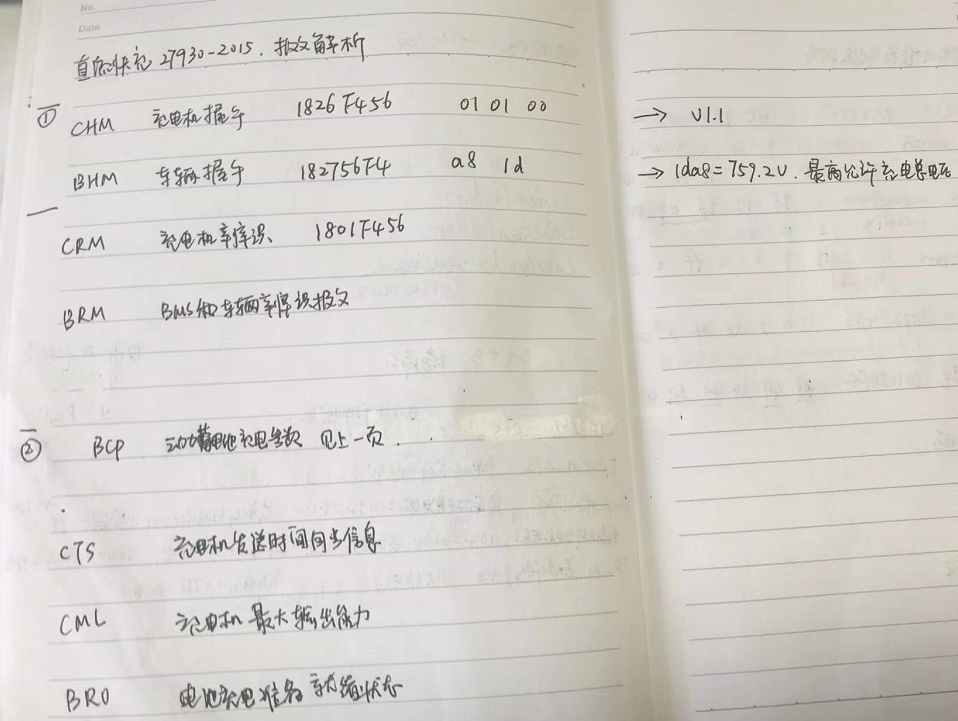 No.
Date
直流快充 27930-2015. 报文解析
① CHM 充电机握手 1826F456 01 01 00 → V1.1
BHM 车辆握手 182756F4 a8 1d → 1da8=759.2V. 最高允许充电总电压
CRM 充电机辨识 1801F456
BRM BMS和车辆辨识报文
② BCP 动力蓄电池充电参数 见上一页.
CTS 充电机发送时间同步信息
CML 充电机最大输出能力
BRO 电池充电准备就绪状态